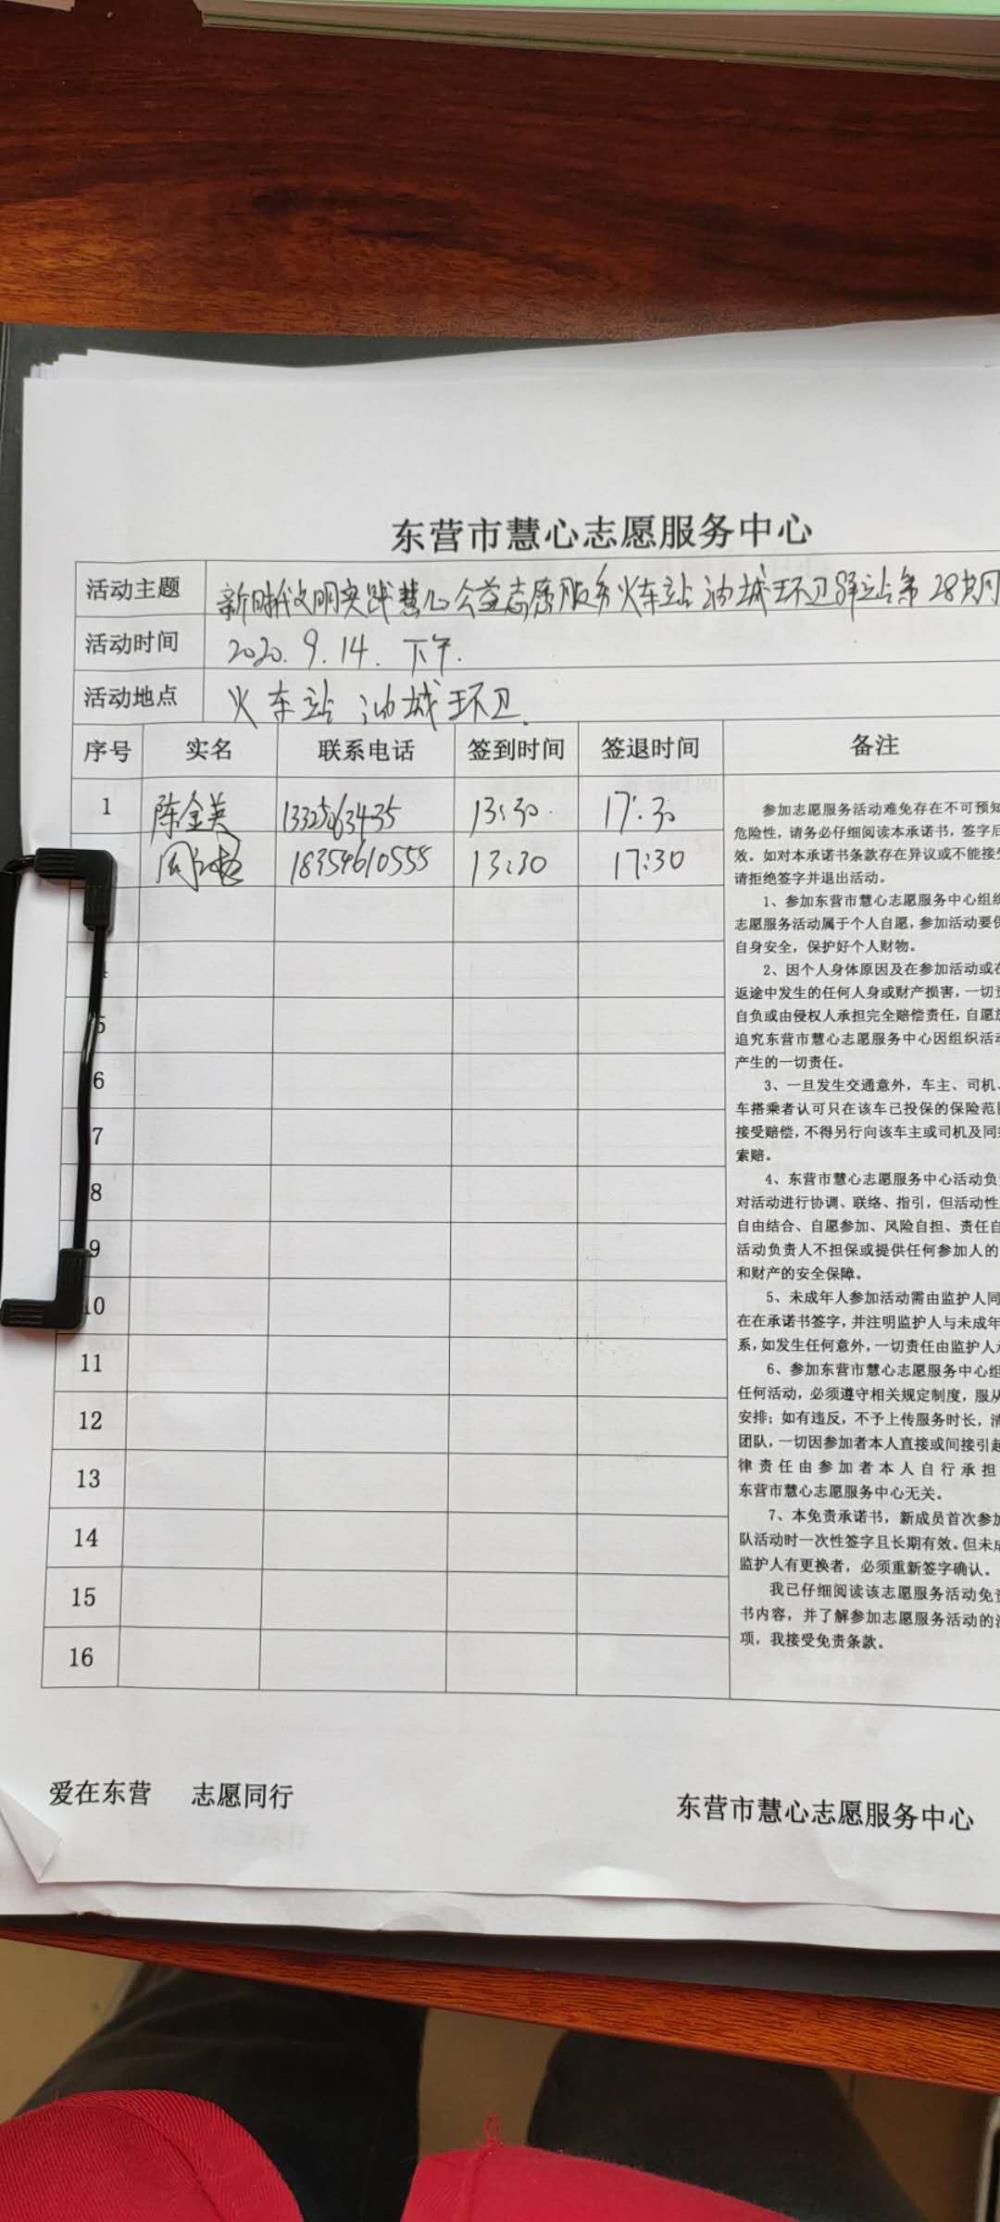 东营市慧心志愿服务中心
活动主题 新时代文明实践慧心公益志愿服务火车站油城环卫驿站第28期
活动时间 2020.9.14.下午.
活动地点 火车站油城环卫.
序号 实名 联系电话 签到时间 签退时间 备注
1 陈金英 13325063435 13:30. 17:30
18354610555 13:30 17:30
5
6
7
8
9
10
11
12
13
14
15
16
参加志愿服务活动难免存在不可预知
危险性，请务必仔细阅读本承诺书，签字后
效。如对本承诺书条款存在异议或不能接受
请拒绝签字并退出活动。
1、参加东营市慧心志愿服务中心组织
志愿服务活动属于个人自愿，参加活动要保
自身安全，保护好个人财物。
2、因个人身体原因及在参加活动或在
返途中发生的任何人身或财产损害，一切责
自负或由侵权人承担完全赔偿责任，自愿放
追究东营市慧心志愿服务中心因组织活动
产生的一切责任。
3、一旦发生交通意外，车主、司机、
车搭乘者认可只在该车已投保的保险范围
接受赔偿，不得另行向该车主或司机及同
索赔。
4、东营市慧心志愿服务中心活动负
对活动进行协调、联络、指引，但活动性
自由结合、自愿参加、风险自担、责任自
活动负责人不担保或提供任何参加人的
和财产的安全保障。
5、未成年人参加活动需由监护人同
在在承诺书签字，并注明监护人与未成年
系，如发生任何意外，一切责任由监护人
6、参加东营市慧心志愿服务中心组
任何活动，必须遵守相关规定制度，服从
安排；如有违反，不予上传服务时长，清
团队，一切因参加者本人直接或间接引起
律责任由参加者本人自行承担
东营市慧心志愿服务中心无关。
7、本免责承诺书，新成员首次参加
队活动时一次性签字且长期有效。但未成
监护人有更换者，必须重新签字确认。
我已仔细阅读该志愿服务活动免责
书内容，并了解参加志愿服务活动的
项，我接受免责条款。
爱在东营 志愿同行
东营市慧心志愿服务中心